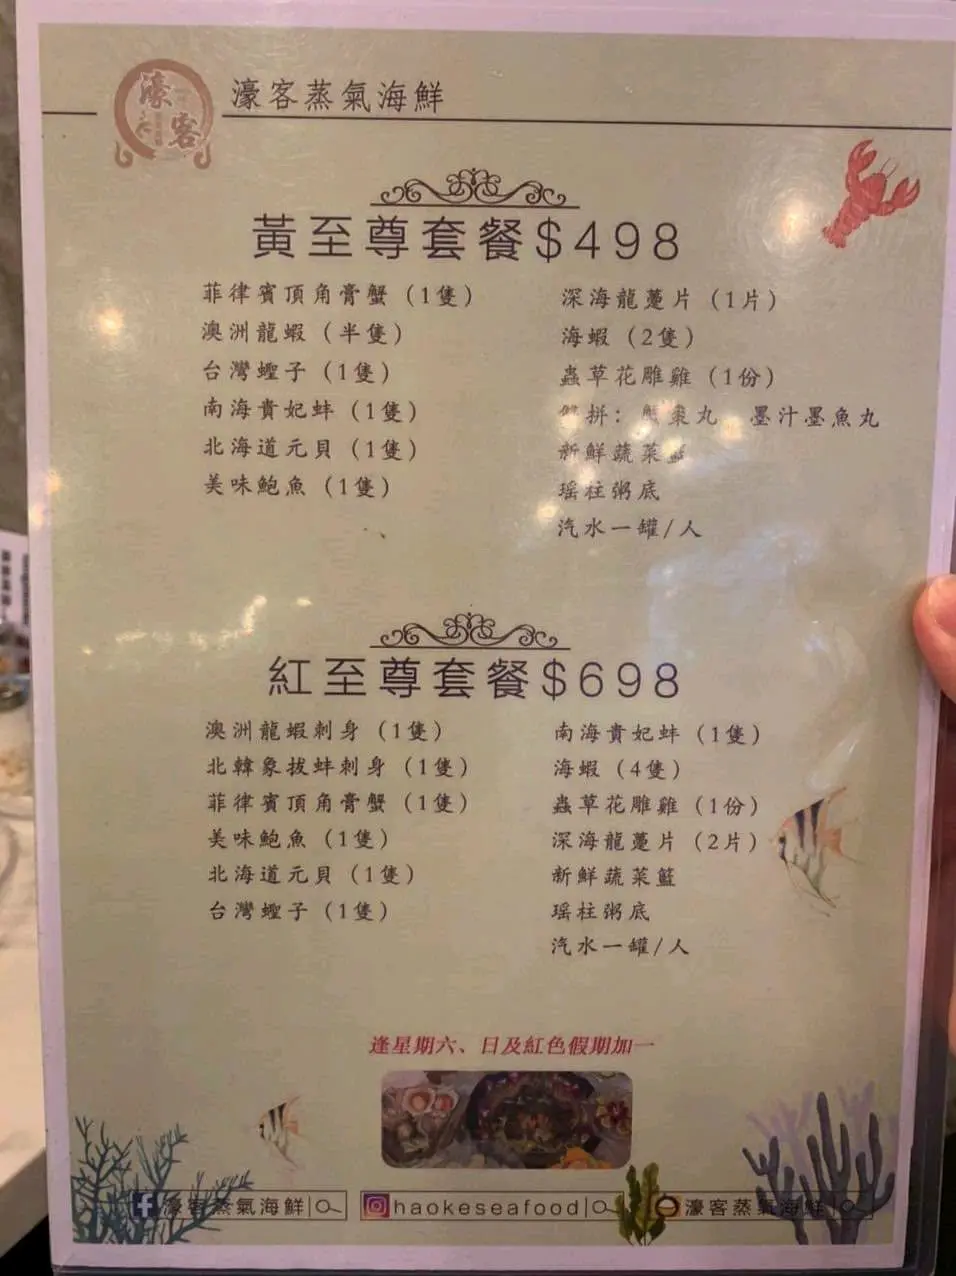 濠客
濠客蒸氣海鮮
黃至尊套餐$498
菲律賓頂角膏蟹（1隻）
澳洲龍蝦（半隻）
台灣蟶子（1隻）
南海貴妃蚌（1隻）
北海道元貝（1隻）
美味鮑魚（1隻）
深海龍躉片（1片）
海蝦（2隻）
蟲草花雕雞（1份）
拼：棗丸 墨汁墨魚丸
新鮮蔬菜籃
瑶柱粥底
汽水一罐/人
紅至尊套餐$698
澳洲龍蝦刺身（1隻）
北韓象拔蚌刺身（1隻）
菲律賓頂角膏蟹（1隻）
美味鮑魚（1隻）
北海道元貝（1隻）
台灣蟶子（1隻）
南海貴妃蚌（1隻）
海蝦（4隻）
蟲草花雕雞（1份）
深海龍躉片（2片）
新鮮蔬菜籃
瑶柱粥底
汽水一罐/人
逢星期六、日及紅色假期加一
濠客蒸氣海鮮
haokeseafood
濠客蒸氣海鮮